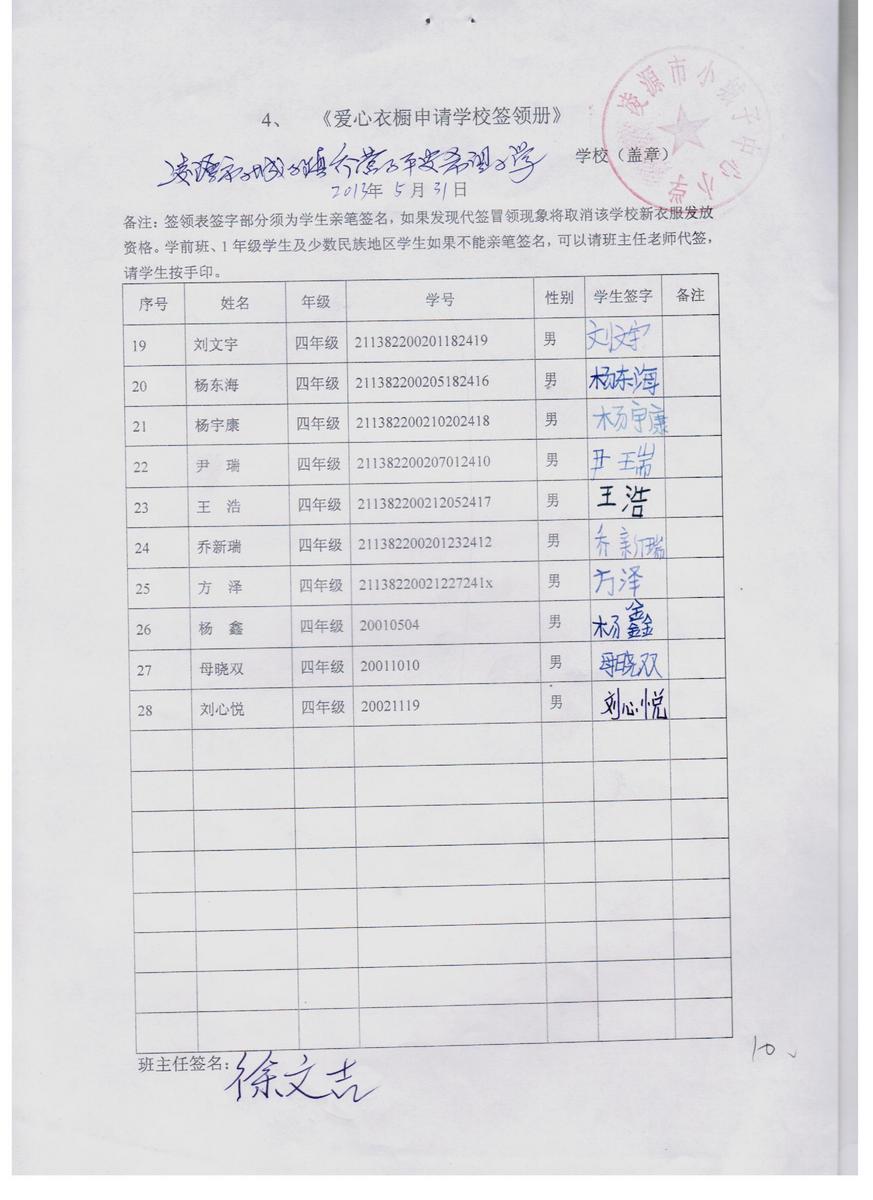 4、 《爱心衣橱申请学校签领册》
凌源市小城子镇乔营子平安希望小学 学校（盖章）
凌源市小城子中心小学
2013年 5月 31日
备注：签领表签字部分须为学生亲笔签名，如果发现代签冒领现象将取消该学校新衣服发放
资格。学前班、1年级学生及少数民族地区学生如果不能亲笔签名，可以请班主任老师代签，
请学生按手印。
序号 姓名 年级 学号 性别 学生签字 备注
19 刘文宇 四年级 211382200201182419 男 刘文宇
20 杨东海 四年级 211382200205182416 男 杨东海
21 杨宇康 四年级 211382200210202418 男 杨宇康
22 尹 瑞 四年级 211382200207012410 男 尹瑞
23 王 浩 四年级 211382200212052417 男 王浩
24 乔新瑞 四年级 211382200201232412 男 乔新瑞
25 方 泽 四年级 21138220021227241x 男 方泽
26 杨 鑫 四年级 20010504 男 杨鑫
27 母晓双 四年级 20011010 男 母晓双
28 刘心悦 四年级 20021119 男 刘心悦
班主任签名：徐文吉
10、